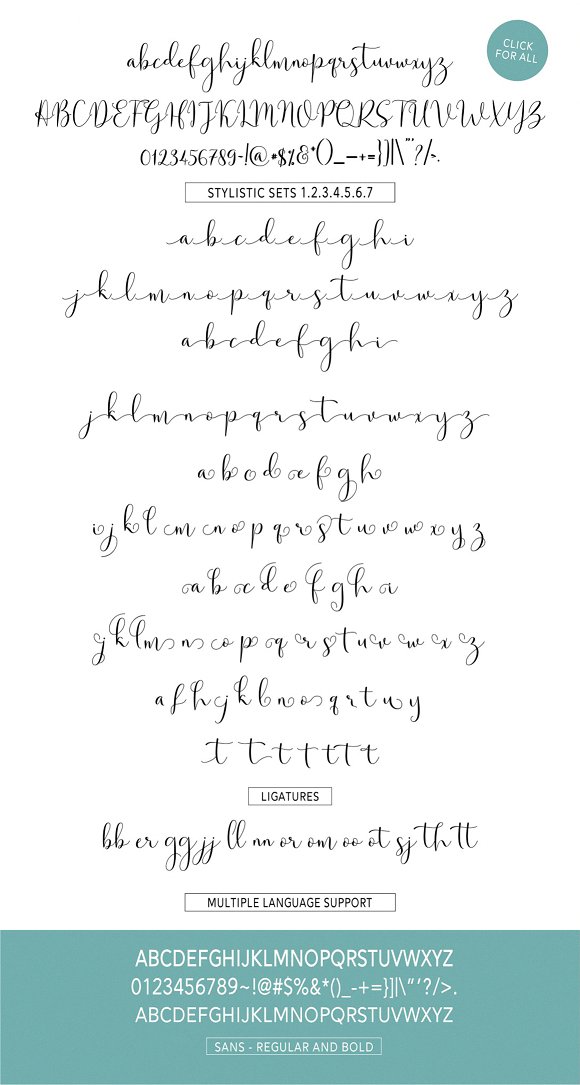 CLICK
FOR ALL
abcdefghijklmnopqrstuvwxyz
ABCDEFGHIJKLMNOPQRSTUVWXYZ
0123456789~!@#$%&*()_—+=}]|\"'?/>.
STYLISTIC SETS 1.2.3.4.5.6.7
abcdefghi
jklmnopqrstuvwxyz
abcdefghi
jklmnopqrstuvwxyz
a b c d e f g h
i j k l m n o p q r s t u v w x y z
a b c d e f g h i
j k l m n o p q r s t u v w x z
a f h j k l n o q r t u y
t t t t t t t
LIGATURES
bb er gg jj ll nn or om oo ot sj th tt
MULTIPLE LANGUAGE SUPPORT
ABCDEFGHIJKLMNOPQRSTUVWXYZ
0123456789~!@#$%&*()_-+=}]|\"'?/>.
ABCDEFGHIJKLMNOPQRSTUVWXYZ
SANS - REGULAR AND BOLD